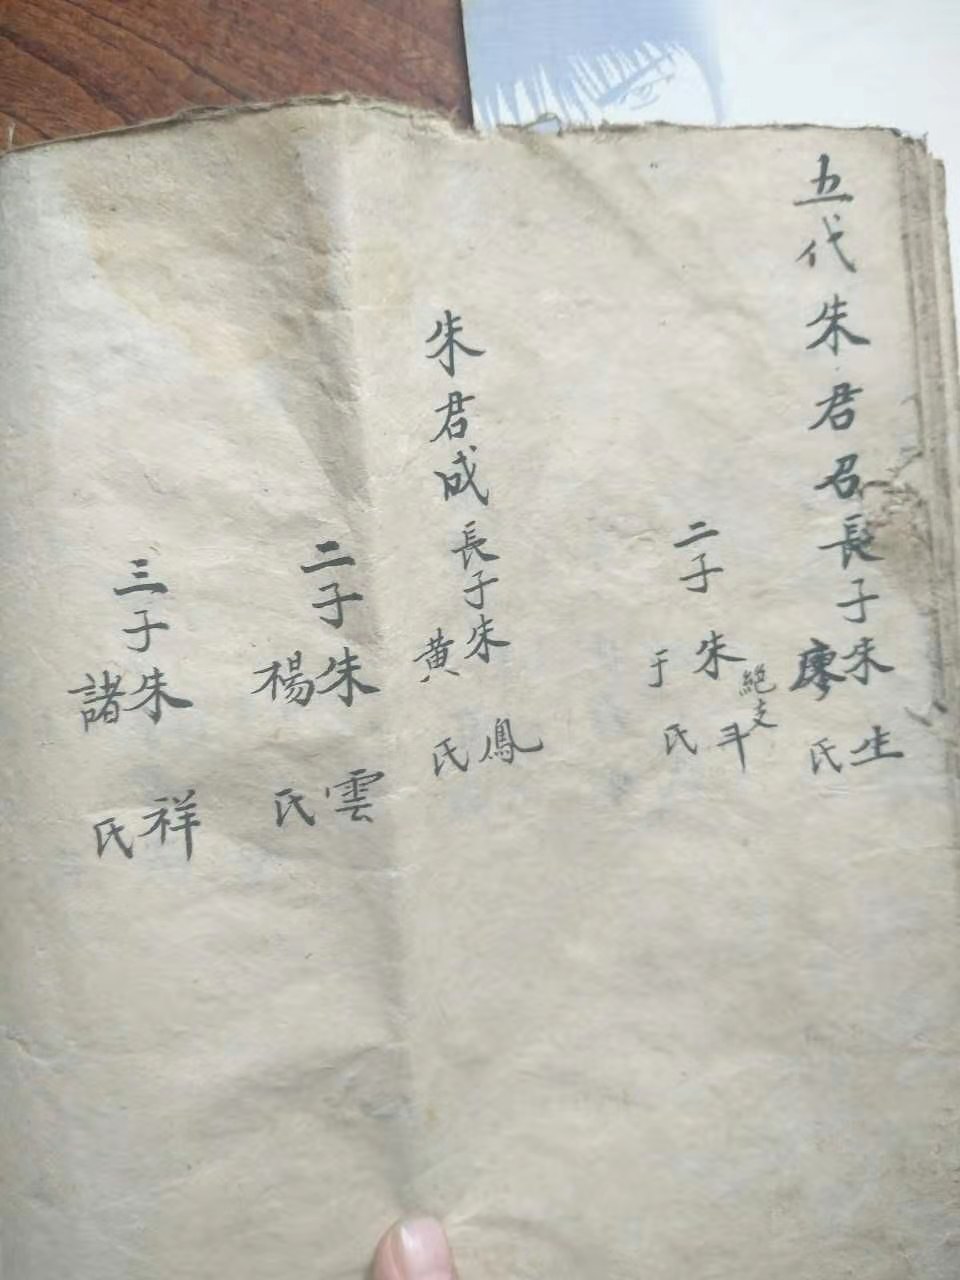 五代朱君召長子朱生
廖氏
二子朱斗
絕支
于氏
朱君成長子朱鳳
黄氏
二子朱雲
楊氏
三子朱祥
諸氏